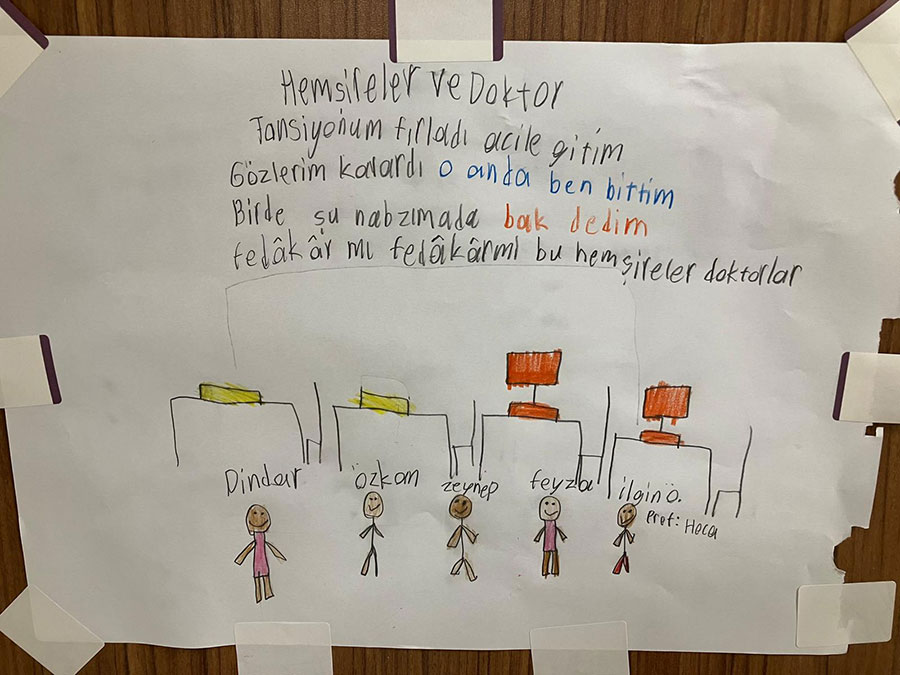 Hemşireler ve Doktor
Tansiyonum fırladı acile gitim
Gözlerim karardı o anda ben bittim
Birde şu nabzımada bak dedim
fedâkâr mı fedâkârmı bu hemşireler doktorlar
Dindar özkan zeynep feyza ilgin ö.
Prof: Hoca